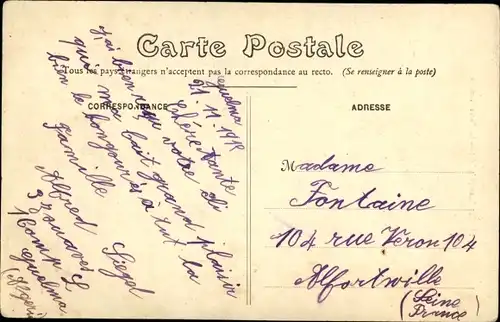 Carte Postale
Tous les pays étrangers n'acceptent pas la correspondance au recto. (Se renseigner à la poste)
CORRESPONDANCE
ADRESSE
Guelma
21.11.1918
Chère Tante
j'ai bien reçu votre
qui ma fait grand plaisir
bien le bongour à tut la
Famille
Alfred Siegel
3 zouaves
16 Comp
guelma
(Algeri
Madame
Fontaine
104 rue Véron 104
Alfortville
(Seine
France)